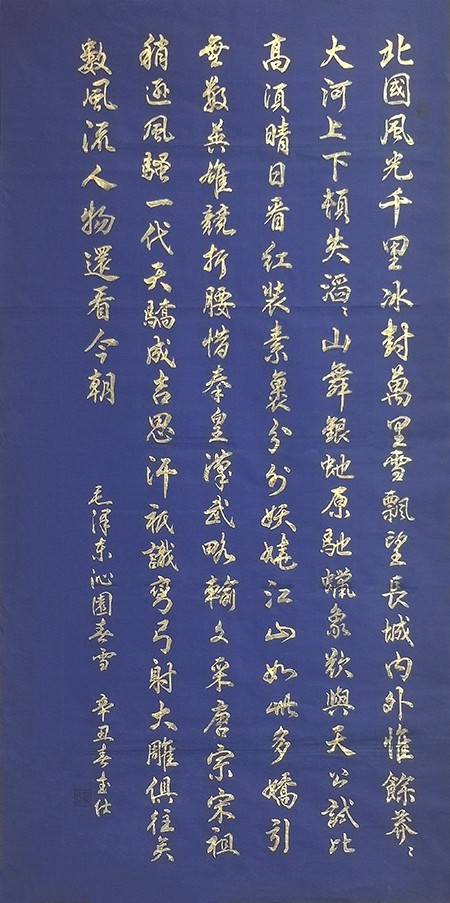 北國風光千里冰封萬里雪飄望長城內外惟餘莽〻
大河上下頓失滔〻山舞銀虵原馳蠟象欲與天公試比
高須晴日看紅裝素裹分外妖嬈江山如此多嬌引
無數英雄競折腰惜秦皇漢武略輸文采唐宗宋祖
稍遜風騷一代天驕成吉思汗祇識彎弓射大雕俱往矣
數風流人物還看今朝
毛澤東沁園春雪 辛丑春